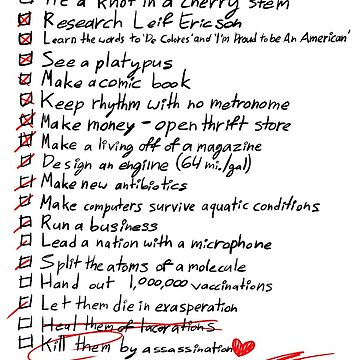 Tie a knot in a cherry stem
Research Leif Ericson
Learn the words to 'De Colores' and 'I'm Proud to be An American'
See a platypus
Make a comic book
Keep rhythm with no metronome
Make money - open thrift store
Make a living off of a magazine
Design an engine (64 mi./gal)
Make new antibiotics
Make computers survive aquatic conditions
Run a business
Lead a nation with a microphone
Split the atoms of a molecule
Hand out 1,000,000 vaccinations
Let them die in exasperation
Heal them of lacorations
Kill them by assassination